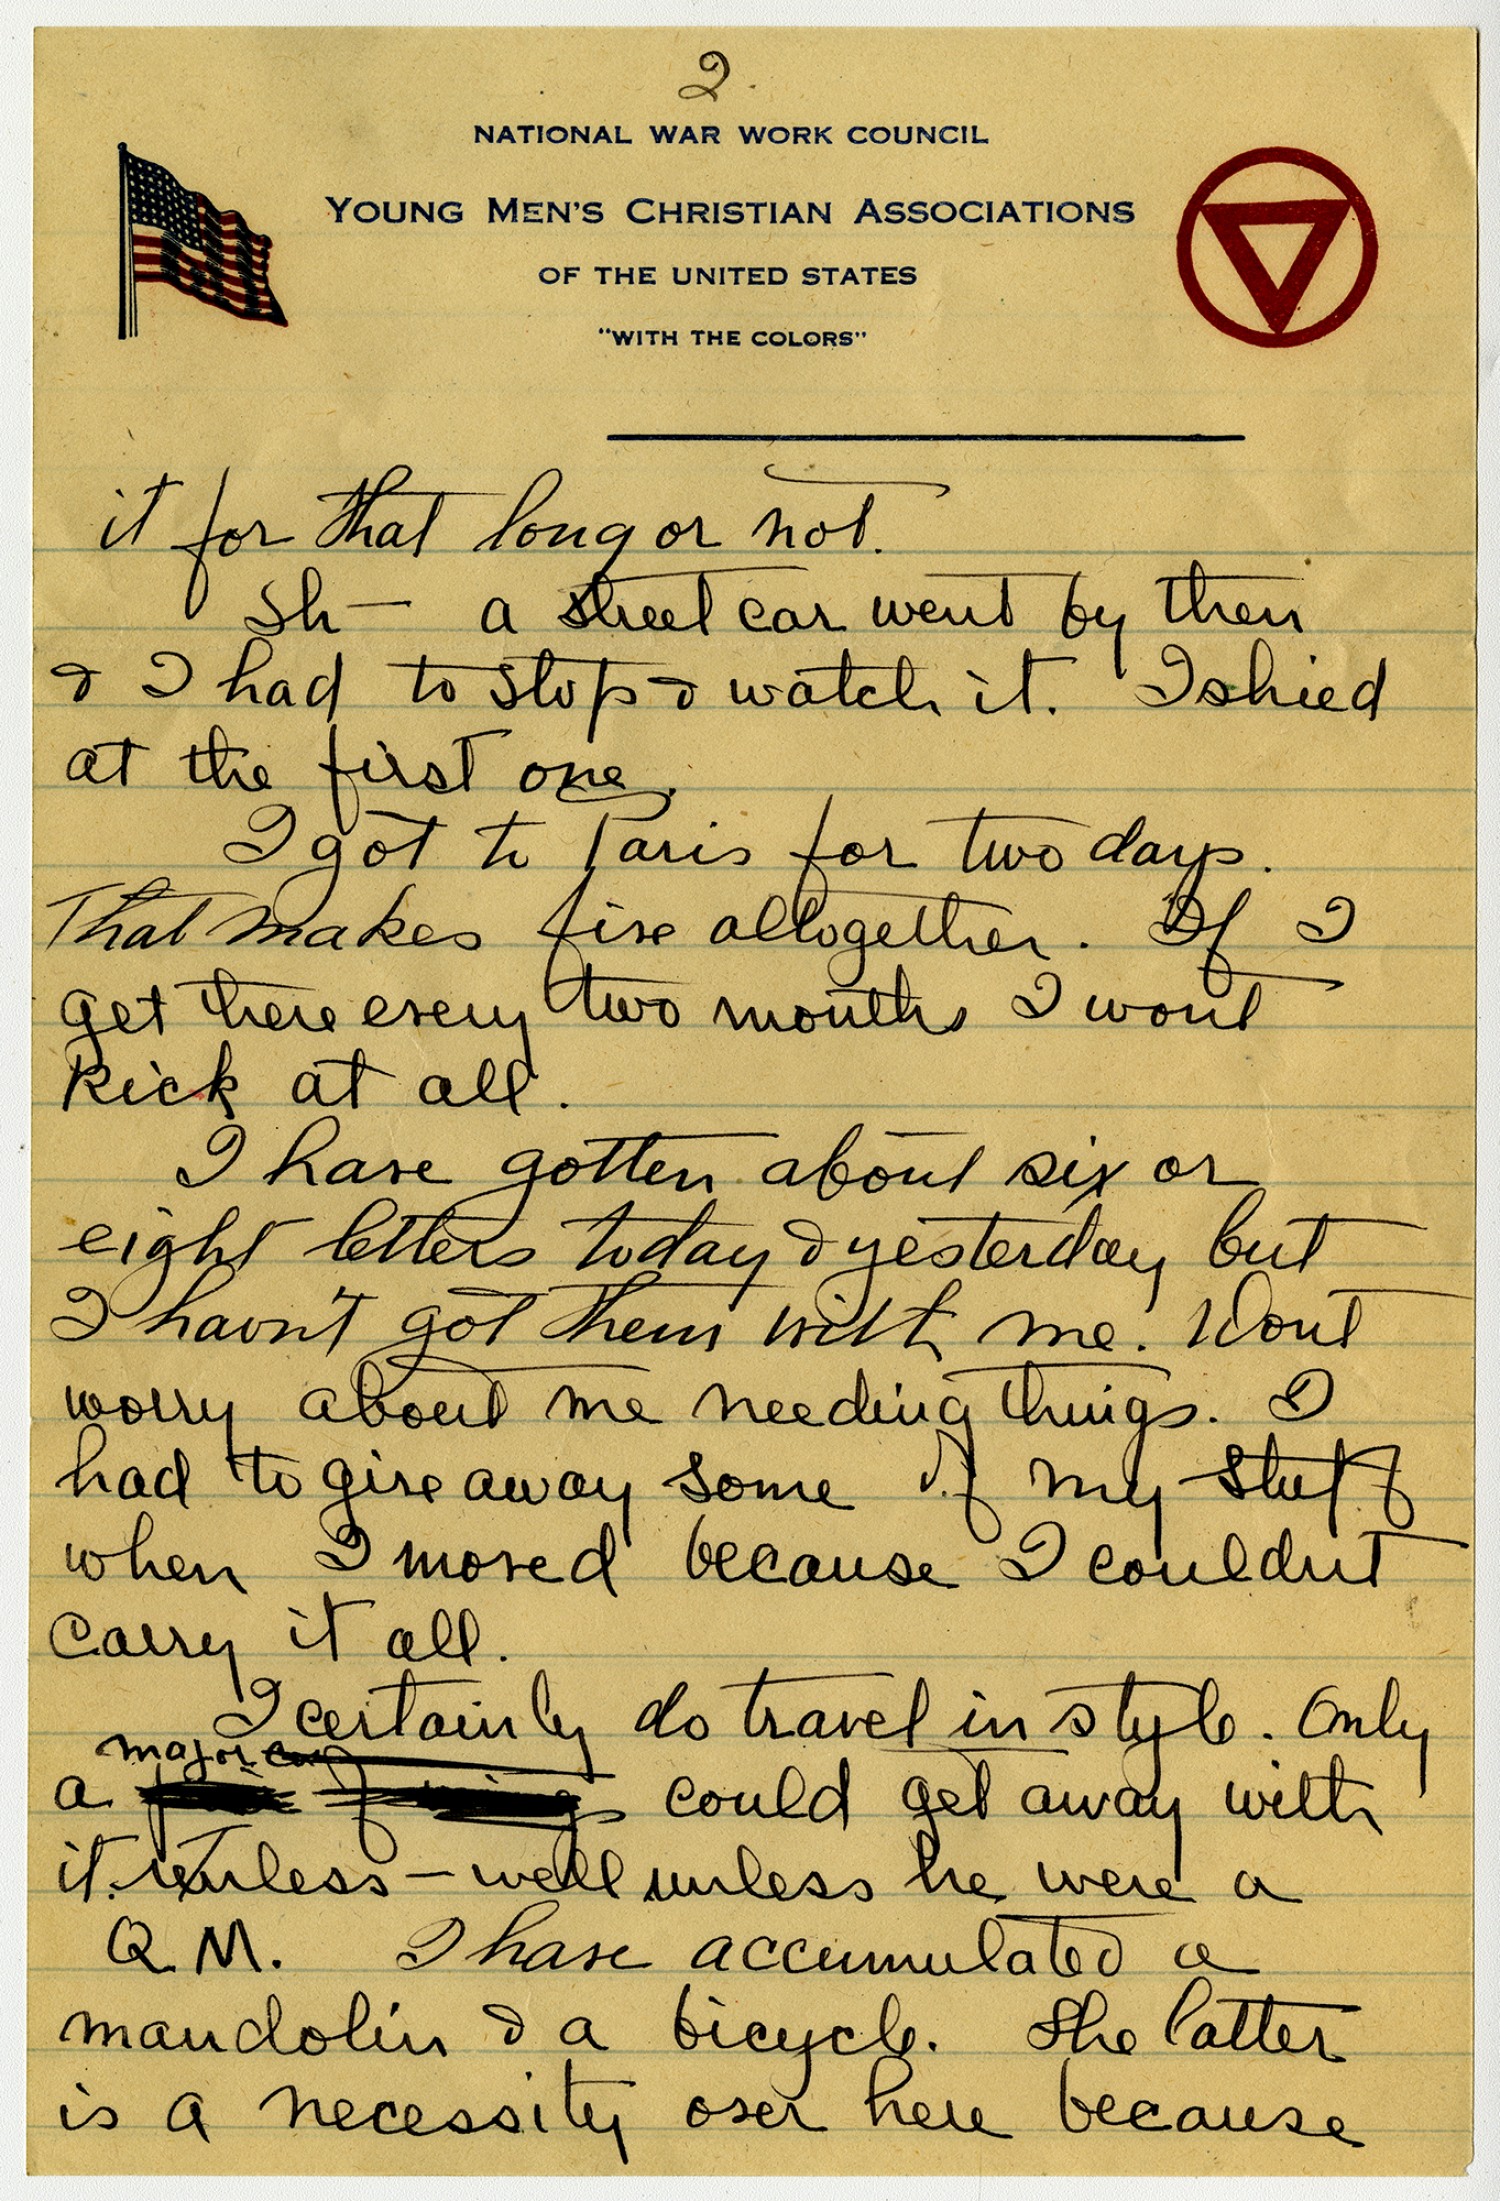 2.
NATIONAL WAR WORK COUNCIL
YOUNG MEN'S CHRISTIAN ASSOCIATIONS
OF THE UNITED STATES
"WITH THE COLORS"
it for that long or not.
Sh— a street car went by then
& I had to stop & watch it. I shied
at the first one.
I got to Paris for two days.
That makes five altogether. If I
get there every two months I wont
kick at all.
I have gotten about six or
eight letters today & yesterday but
I havn't got them with me. Dont
worry about me needing things. I
had to give away some of my stuff
when I moved because I couldnt
carry it all.
I certainly do travel in style. Only
major
a could get away with
it. unless — well unless he were a
Q.M. I have accumulated a
mandolin & a bicycle. The latter
is a necessity over here because